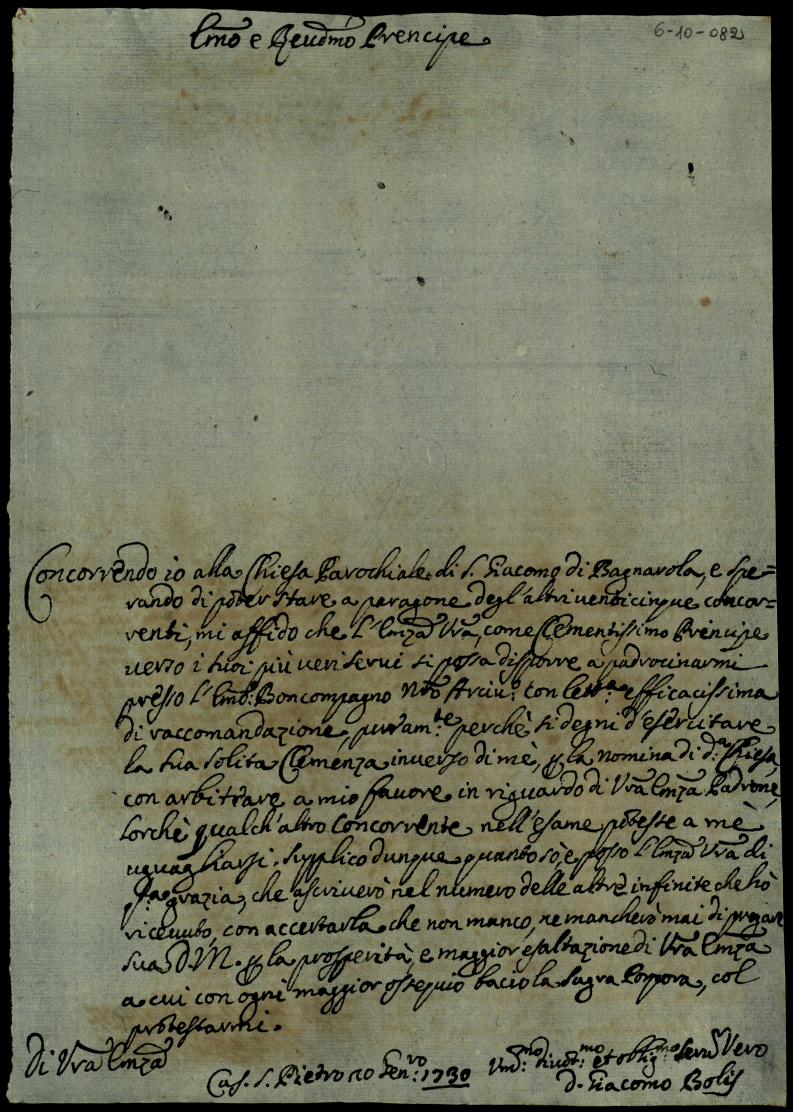 Emo e Reudmo Prencipe
6-10-082
Concorrendo io alla Chiesa Parochiale di S. Giacomo di Bagnarola, e spe=
rando di poter stare a paragone degl'altri venticinque concor=
renti, mi affido che l'Emza Vra, come Clementissimo Prencipe
verso i suoi più veri servi si possa disporre a padrocinarmi
presso l'Emo: Boncompagno Nro Arciv.o con lettra efficacissima
di raccomandazione, puram:te perchè si degni d'esercitare
la sua solita Clemenza inverso di mè, p la nomina di d:a Chiesa,
con arbitrare a mio favore in riguardo di Vra Emza Padrone,
lorchè qualch'altro Concorrente nell'esame potesse a mè
uguagliarsi. Supplico dunque quanto sò, e posso l'Emza Vra di
q:ta grazia, che ascriverò nel numero delle altre infinite che hò
ricevuto, con accertarla che non manco, ne mancherò mai di pregare
Sua D. M. p la prosperità, e maggior esaltazione di Vra Emza
a cui con ogni maggior ossequio bacio la Sagra Porpora, col
protestarmi.
Di Vra Emza
Cas. S. Pietro 20 Gen:ro 1730
Um:mo divot:mo et oblig:mo Serud Vero
D. Giacomo Bolis